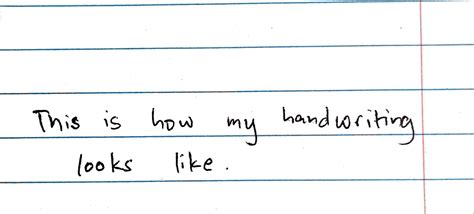 This is how my handwriting
looks like.